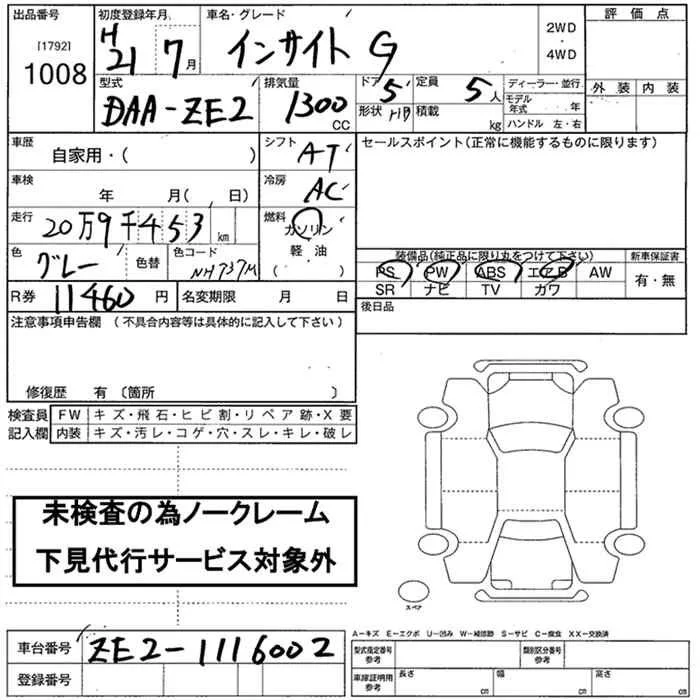 出品番号 初度登録年月 車名・グレード 評価点
[1792] 1008 H21 7月 インサイト G 2WD・4WD
型式 排気量 ドア 5 定員 5人 ディーラー・並行 外装 内装
DAA-ZE2 1300 CC 形状 HB 積載 kg モデル年式 年
ハンドル 左・右
車歴 シフト AT セールスポイント(正常に機能するものに限ります)
自家用・( )
車検 年 月( 日) 冷房 AC
走行 20万9千453 km 燃料 ガソリン
軽・油
( )
色 グレー 色替 色コード NH737M 装備品(純正品に限り丸をつけて下さい) 新車保証書
PS PW ABS エアB AW 有・無
R券 11460円 名変期限 月 日 SR ナビ TV カワ
注意事項申告欄 (不具合内容等は具体的に記入して下さい) 後日品
修復歴 有 〔箇所 〕
検査員 FW キズ・飛石・ヒビ割・リペア跡・X要
記入欄 内装 キズ・汚レ・コゲ・穴・スレ・キレ・破レ
未検査の為ノークレーム
下見代行サービス対象外
スペア
A-キズ E-エクボ U-凹み W-補修跡 S-サビ C-腐食 XX-交換済
車台番号 ZE2-1116002 型式指定番号 参考 類別区分番号 参考
登録番号 車庫証明用 参考 長さ cm 幅 cm 高さ cm